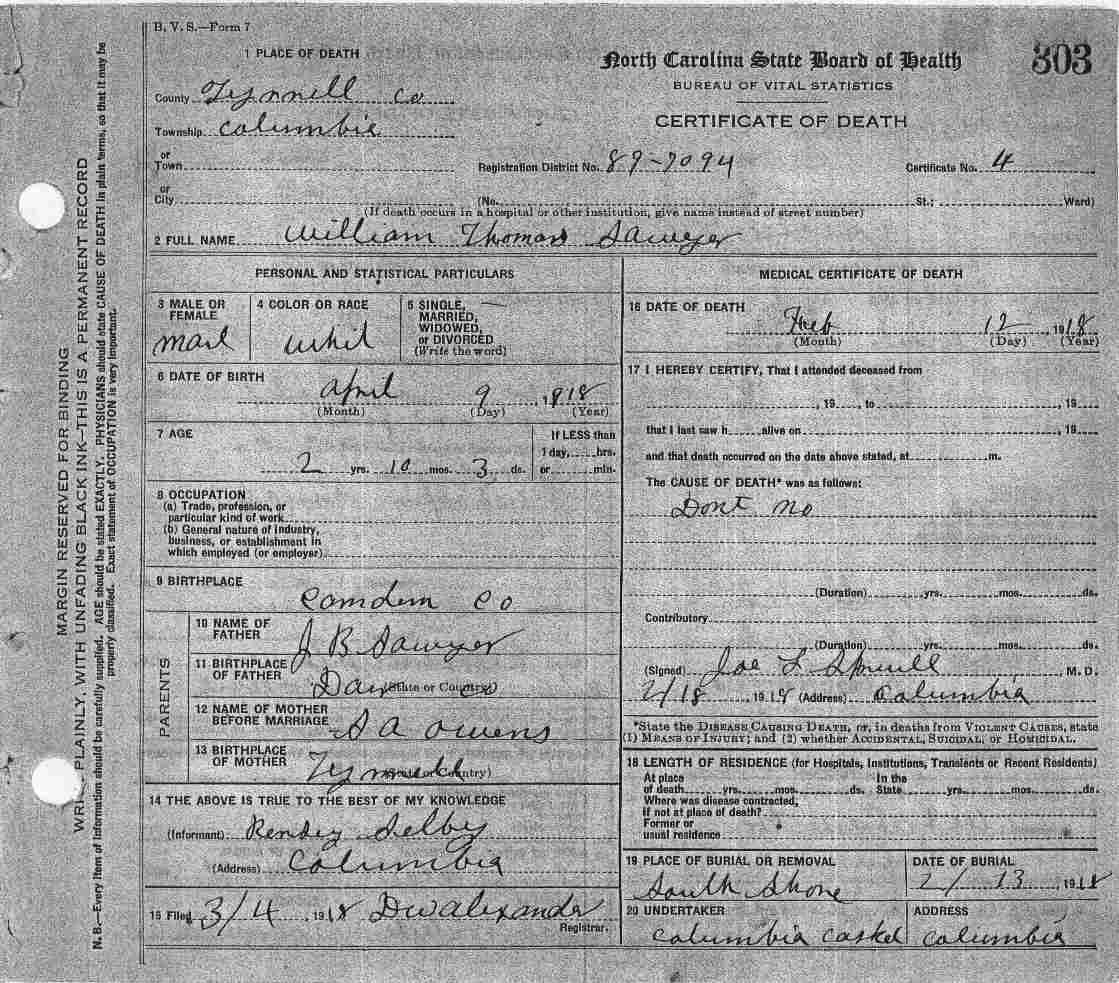 B. V. S.—Form 7
1 PLACE OF DEATH
County Tyrrell Co
Township Columbia
or
Town
or
City
North Carolina State Board of Health
303
BUREAU OF VITAL STATISTICS
CERTIFICATE OF DEATH
Registration District No. 89-7094 Certificate No. 4
(No. St.; Ward)
(If death occurs in a hospital or other institution, give name instead of street number)
2 FULL NAME William Thomas Sawyer
PERSONAL AND STATISTICAL PARTICULARS
3 MALE OR FEMALE
mail
4 COLOR OR RACE
whit
5 SINGLE, MARRIED, WIDOWED, or DIVORCED
(Write the word)
6 DATE OF BIRTH
April 9, 1818
(Month) (Day) (Year)
7 AGE
2 yrs. 10 mos. 3 ds.
If LESS than
1 day, hrs.
or min.
8 OCCUPATION
(a) Trade, profession, or
particular kind of work
(b) General nature of industry,
business, or establishment in
which employed (or employer)
9 BIRTHPLACE
Camden Co
PARENTS
10 NAME OF FATHER
J B Sawyer
11 BIRTHPLACE OF FATHER
Dare Co
(State or Country)
12 NAME OF MOTHER BEFORE MARRIAGE
S A Owens
13 BIRTHPLACE OF MOTHER
Tyrrell
(State or Country)
14 THE ABOVE IS TRUE TO THE BEST OF MY KNOWLEDGE
(Informant) Selby
(Address) Columbia
15 Filed 3/4, 1918 DW Alexander
Registrar.
MEDICAL CERTIFICATE OF DEATH
16 DATE OF DEATH
Feb 12, 1918
(Month) (Day) (Year)
17 I HEREBY CERTIFY, That I attended deceased from
, 19 , to , 19
that I last saw h alive on , 19
and that death occurred on the date above stated, at m.
The CAUSE OF DEATH* was as follows:
Dont no
(Duration) yrs. mos. ds.
Contributory
(Duration) yrs. mos. ds.
(Signed) Joe L Spruill, M. D.
2/18 1918 (Address) Columbia
*State the DISEASE CAUSING DEATH, or, in deaths from VIOLENT CAUSES, state
(1) MEANS OF INJURY; and (2) whether ACCIDENTAL, SUICIDAL, or HOMICIDAL.
18 LENGTH OF RESIDENCE (for Hospitals, Institutions, Transients or Recent Residents)
At place of death yrs. mos. ds. In the State yrs. mos. ds.
Where was disease contracted,
if not at place of death?
Former or
usual residence
19 PLACE OF BURIAL OR REMOVAL
South Shore
DATE OF BURIAL
2/13, 1918
20 UNDERTAKER
Columbia Casket
ADDRESS
Columbia
MARGIN RESERVED FOR BINDING
WRITE PLAINLY, WITH UNFADING BLACK INK—THIS IS A PERMANENT RECORD
N. B.—Every item of information should be carefully supplied. AGE should be stated EXACTLY. PHYSICIANS should state CAUSE OF DEATH in plain terms, so that it may be
properly classified. Exact statement of OCCUPATION is very important.